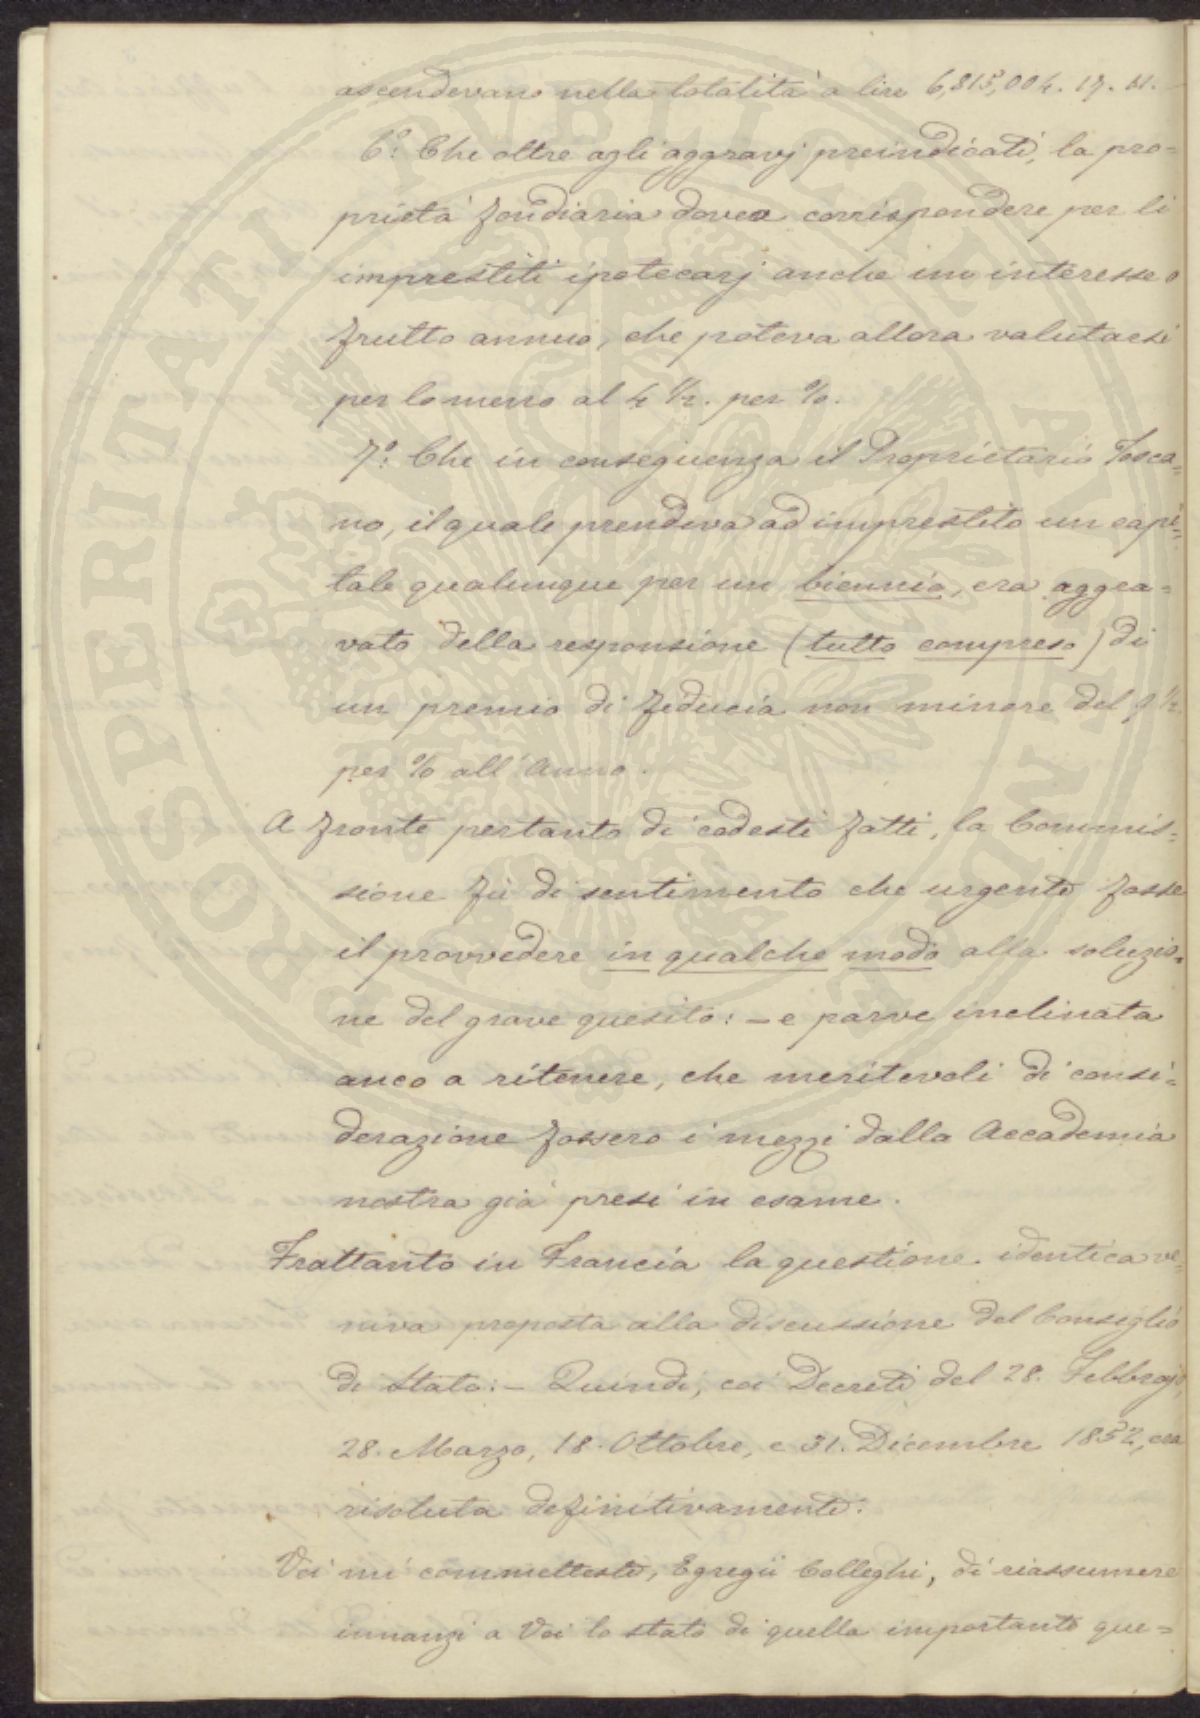 ascendevano nella totalità a lire 6,815,004. 17. 11.
6º: Che oltre agli aggravj preindicati, la pro=
prietà fondiaria dovea corrispondere per li
imprestiti ipotecarj anche uno interesse o
frutto annuo, che poteva allora valutarsi
per lo meno al 4 ½. per %.
7º: Che in conseguenza il Proprietario Tosca=
no, il quale prendeva ad imprestito un capi=
tale qualunque per un biennio, era aggra=
vato della responsione (tutto compreso) di
un premio di fiducia non minore del 9 ½
per % all'Anno.
A fronte pertanto di codesti fatti, la Commis=
sione fù di sentimento che urgente fosse
il provvedere in qualche modo alla soluzio=
ne del grave quesito: – e parve inclinata
anco a ritenere, che meritevoli di consi=
derazione fossero i mezzi dalla Accademia
nostra già presi in esame.
Frattanto in Francia la questione identica ve=
niva proposta alla discussione del Consiglio
di Stato: – Quindi, coi Decreti del 28. Febbrajo,
28. Marzo, 18. Ottobre, e 31. Dicembre 1852, era
risoluta definitivamente.
Voi mi commetteste, Egregii Colleghi, di riassumere
innanzi a Voi lo stato di quella importante que=
PROSPERITATI PUBLICAE AUGENDAE